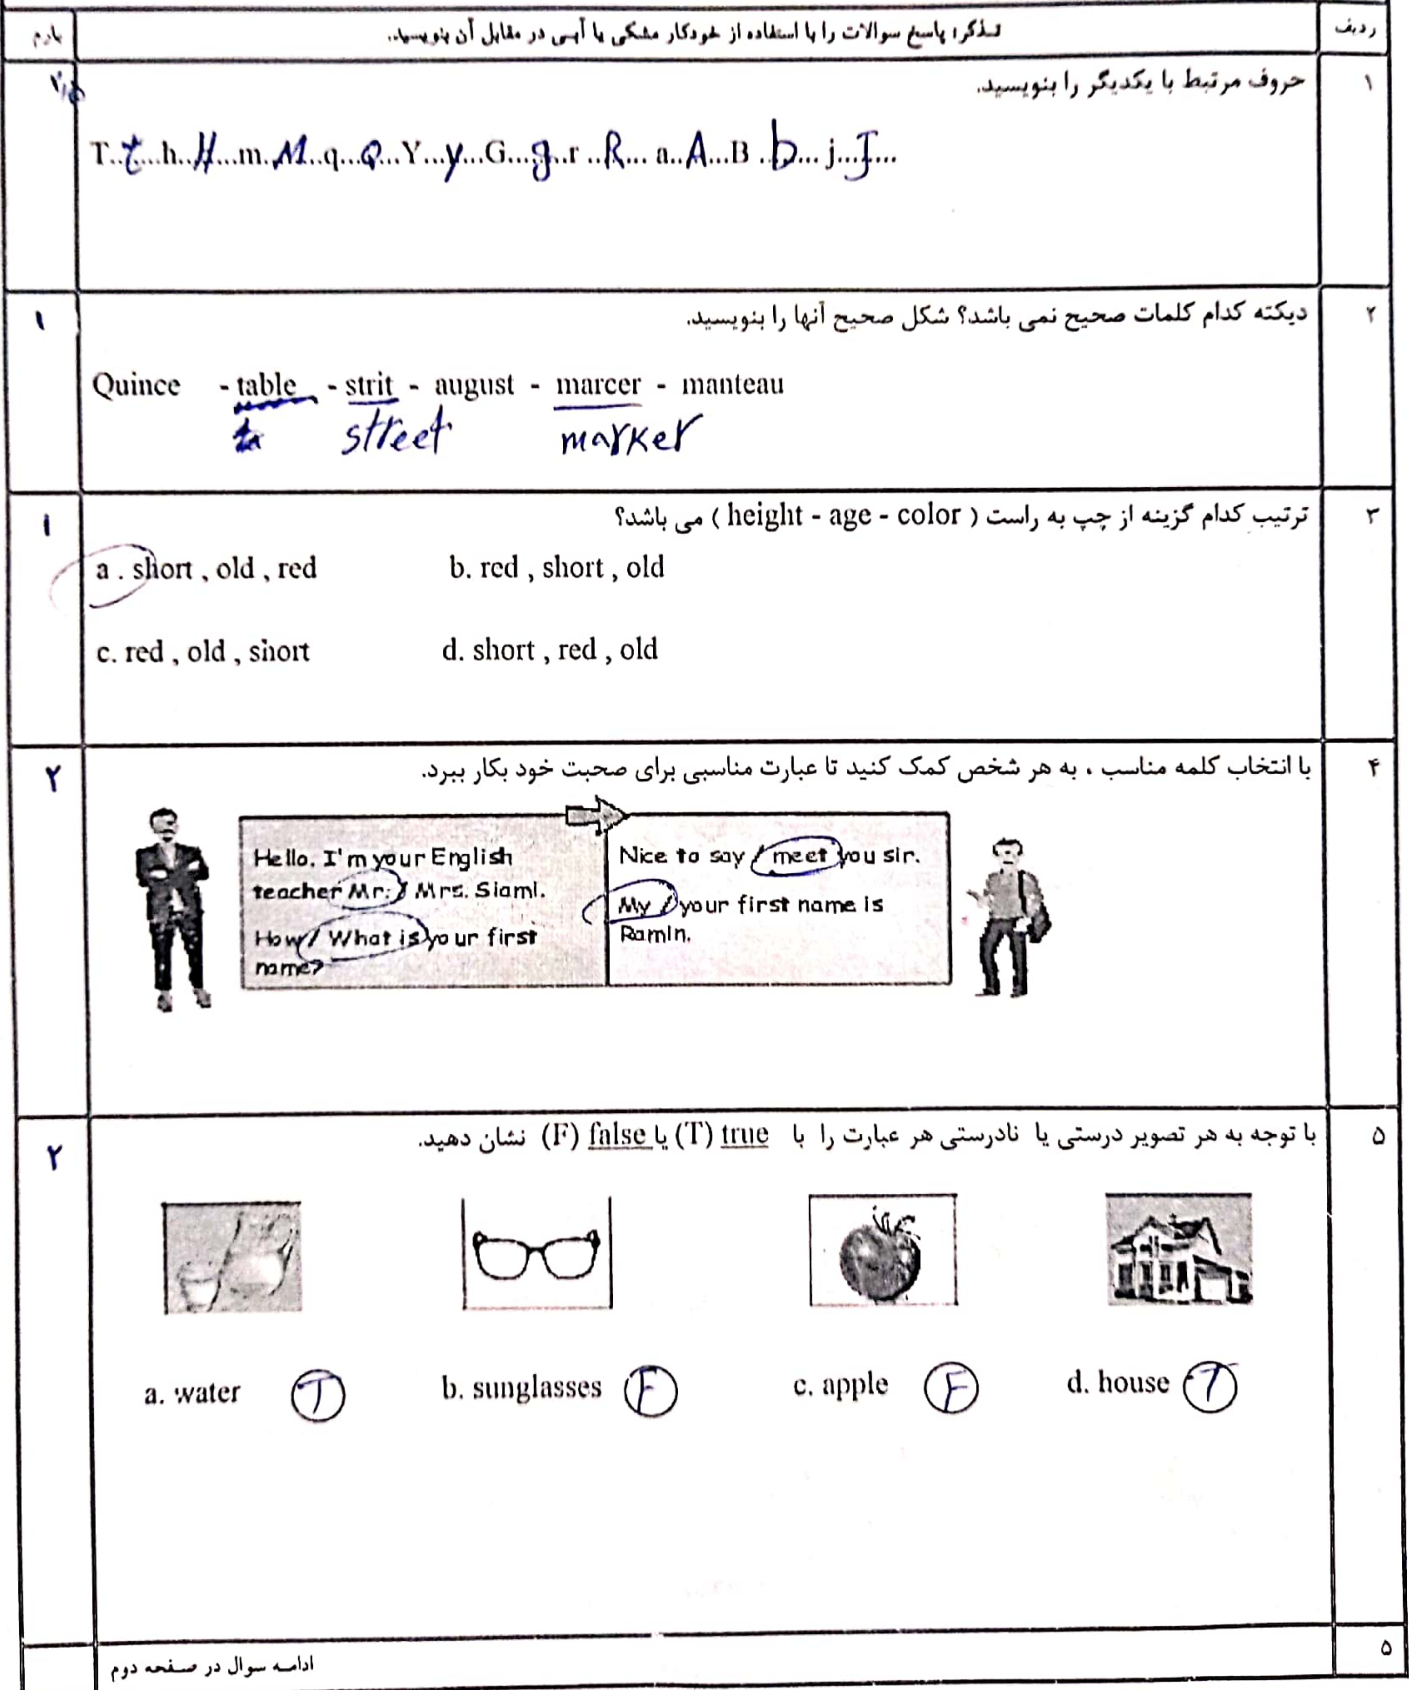 ردیف
تذکر: پاسخ سوالات را با استفاده از خودکار مشکی یا آبی در مقابل آن بنویسید.
بارم
۱
حروف مرتبط با یکدیگر را بنویسید.
T..t...h..H...m..M..q...Q...Y...y...G...g..r ..R... a..A...B ..b... j...J...
۲
دیکته کدام کلمات صحیح نمی باشد؟ شکل صحیح آنها را بنویسید.
۱
Quince - table - strit - august - marcer - manteau
street marker
۳
ترتیب کدام گزینه از چپ به راست ( height - age - color ) می باشد؟
۱
a . short , old , red b. red , short , old
c. red , old , short d. short , red , old
۴
با انتخاب کلمه مناسب ، به هر شخص کمک کنید تا عبارت مناسبی برای صحبت خود بکار ببرد.
۲
Hello. I'm your English
teacher Mr. / Mrs. Siami.
How / What is your first
name?
Nice to say / meet you sir.
My / your first name is
Ramin.
۵
با توجه به هر تصویر درستی یا نادرستی هر عبارت را با true (T) یا false (F) نشان دهید.
۲
a. water T b. sunglasses F c. apple F d. house T
۵
ادامه سوال در صفحه دوم